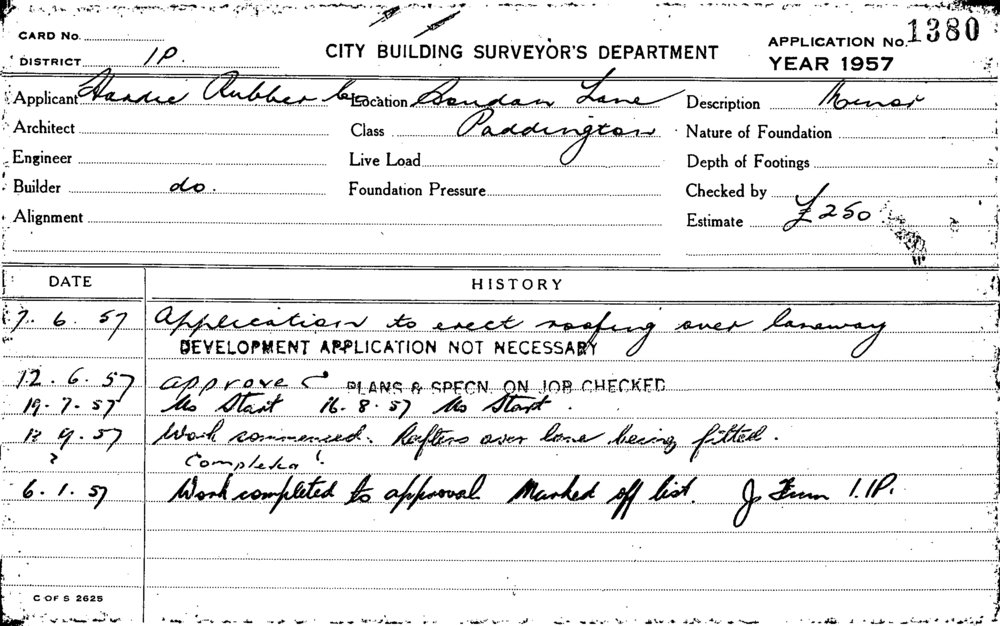 CARD No.
DISTRICT 1P.
CITY BUILDING SURVEYOR'S DEPARTMENT
APPLICATION No. 1380
YEAR 1957
Applicant Hardie Rubber Co. Location Soudan Lane Description Minor
Architect Class Paddington Nature of Foundation
Engineer Live Load Depth of Footings
Builder do. Foundation Pressure Checked by
Alignment Estimate £250
DATE HISTORY
7. 6. 57 Application to erect roofing over laneway
DEVELOPMENT APPLICATION NOT NECESSARY
12. 6. 57 approved PLANS & SPECN. ON JOB CHECKED
19. 7. 57 No Start 16. 8. 57 No Start.
13 9. 57 Work commenced. Rafters over lane being fitted.
? Completed
6. 1. 57 Work completed to approval. Marked off list. J 1.1P.
C OF S 2625